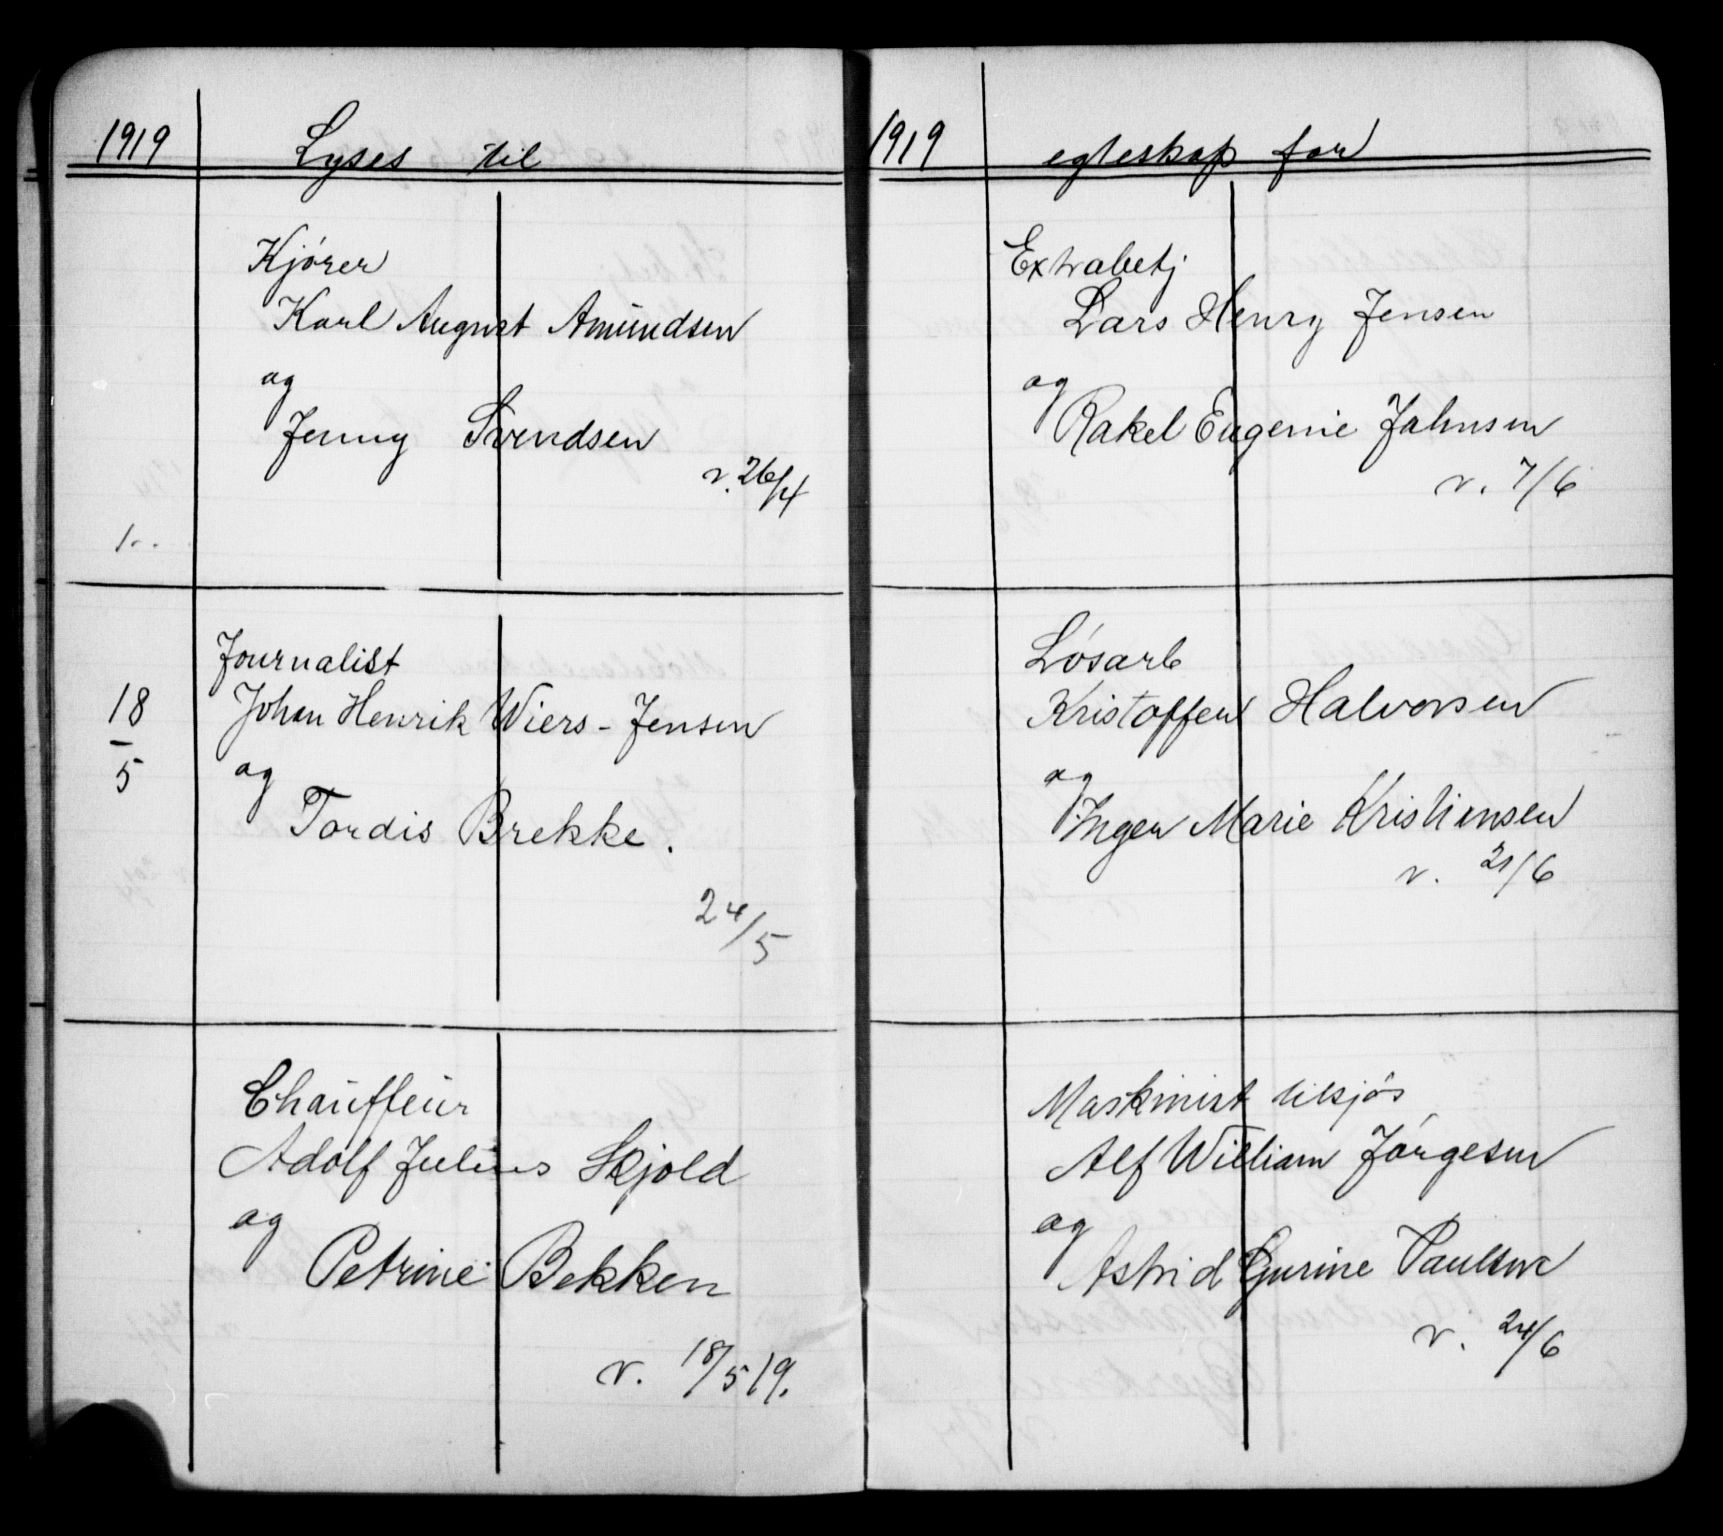 1919 Lyses til
Kjörer
Karl August Amundsen
og
Jenny Svendsen
v. 26/4
Journalist
18/5
Johan Henrik Wiers-Jensen
og
Tordis Brekke.
24/5
Chauffeur
Adolf Julius Skjold
og
Petrine Bekken
v. 18/5 19.
1919 egteskap for
Extrabetj
Lars Henry Jensen
og
Rakel Eugenie Johnsen
v. 7/6
Lósarb
Kristoffer Halvorsen
og
Inger Marie Kristiansen
v. 21/6
Maskinist tilsjös
Alf William Jörgesen
og
Astrid Gurine Paulsen
v. 24/6